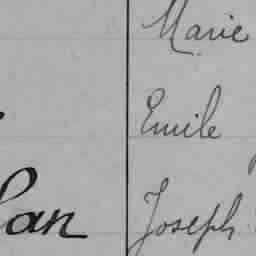 Marie
Emile
Joseph